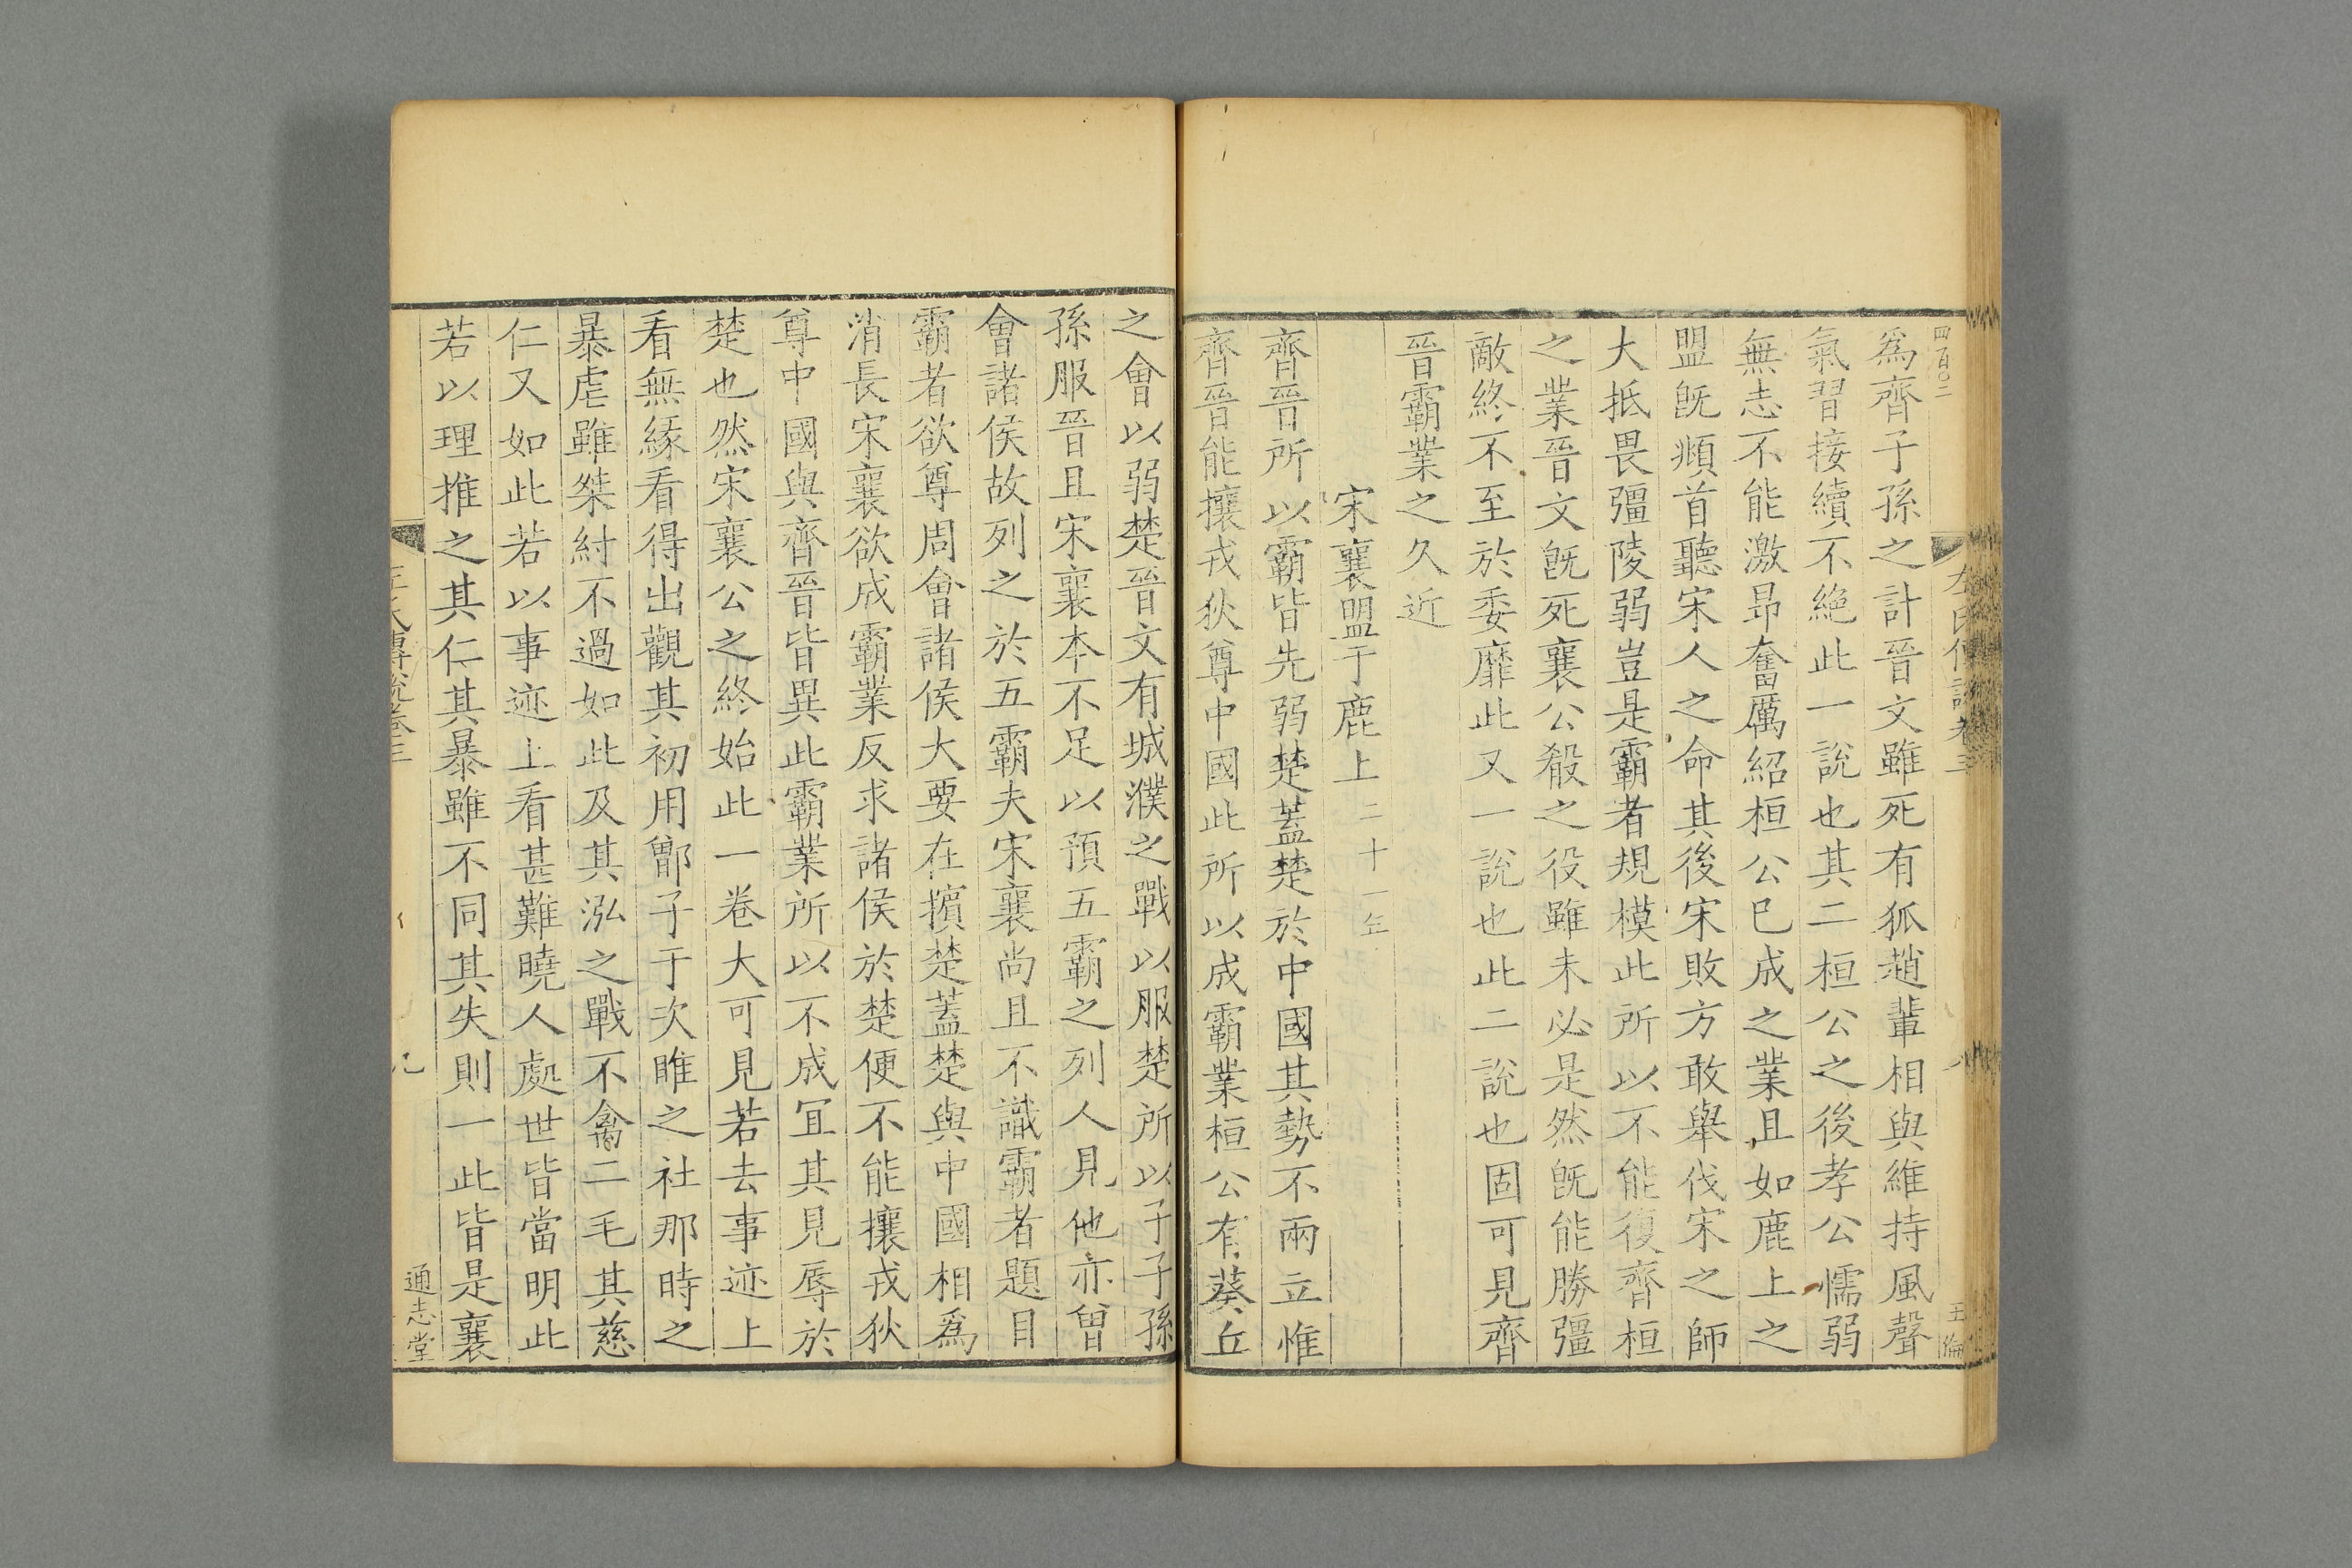 四百〇二
左氏傳說卷三
八
為齊子孫之計晉文雖死有狐趙輩相與維持風聲
氣習接續不絕此一說也其二桓公之後孝公懦弱
無志不能激昻奮厲紹桓公已成之業且如鹿上之
盟旣頫首聽宋人之命其後宋敗方敢舉伐宋之師
大抵畏彊陵弱豈是霸者規模此所以不能復齊桓
之業晉文旣死襄公殽之役雖未必是然旣能勝彊
敵終不至於委靡此又一說也此二說也固可見齊
晉霸業之久近
宋襄盟于鹿上二十一年
齊晉所以霸皆先弱楚蓋楚於中國其勢不兩立惟
齊晉能攘戎狄尊中國此所以成霸業桓公有葵丘
之會以弱楚晉文有城濮之戰以服楚所以子子孫
孫服晉且宋襄本不足以預五霸之列人見他亦曾
會諸侯故列之於五霸夫宋襄尚且不識霸者題目
霸者欲尊周會諸侯大要在擯楚蓋楚與中國相為
消長宋襄欲成霸業反求諸侯於楚便不能攘戎狄
尊中國與齊晉皆異此霸業所以不成宜其見辱於
楚也然宋襄公之終始此一卷大可見若去事迹上
看無緣看得出觀其初用鄫子于次睢之社那時之
暴虐雖桀紂不過如此及其泓之戰不禽二毛其慈
仁又如此若以事迹上看甚難曉人處世皆當明此
若以理推之其仁其暴雖不同其失則一此皆是襄
左氏傳說卷三
九
通志堂